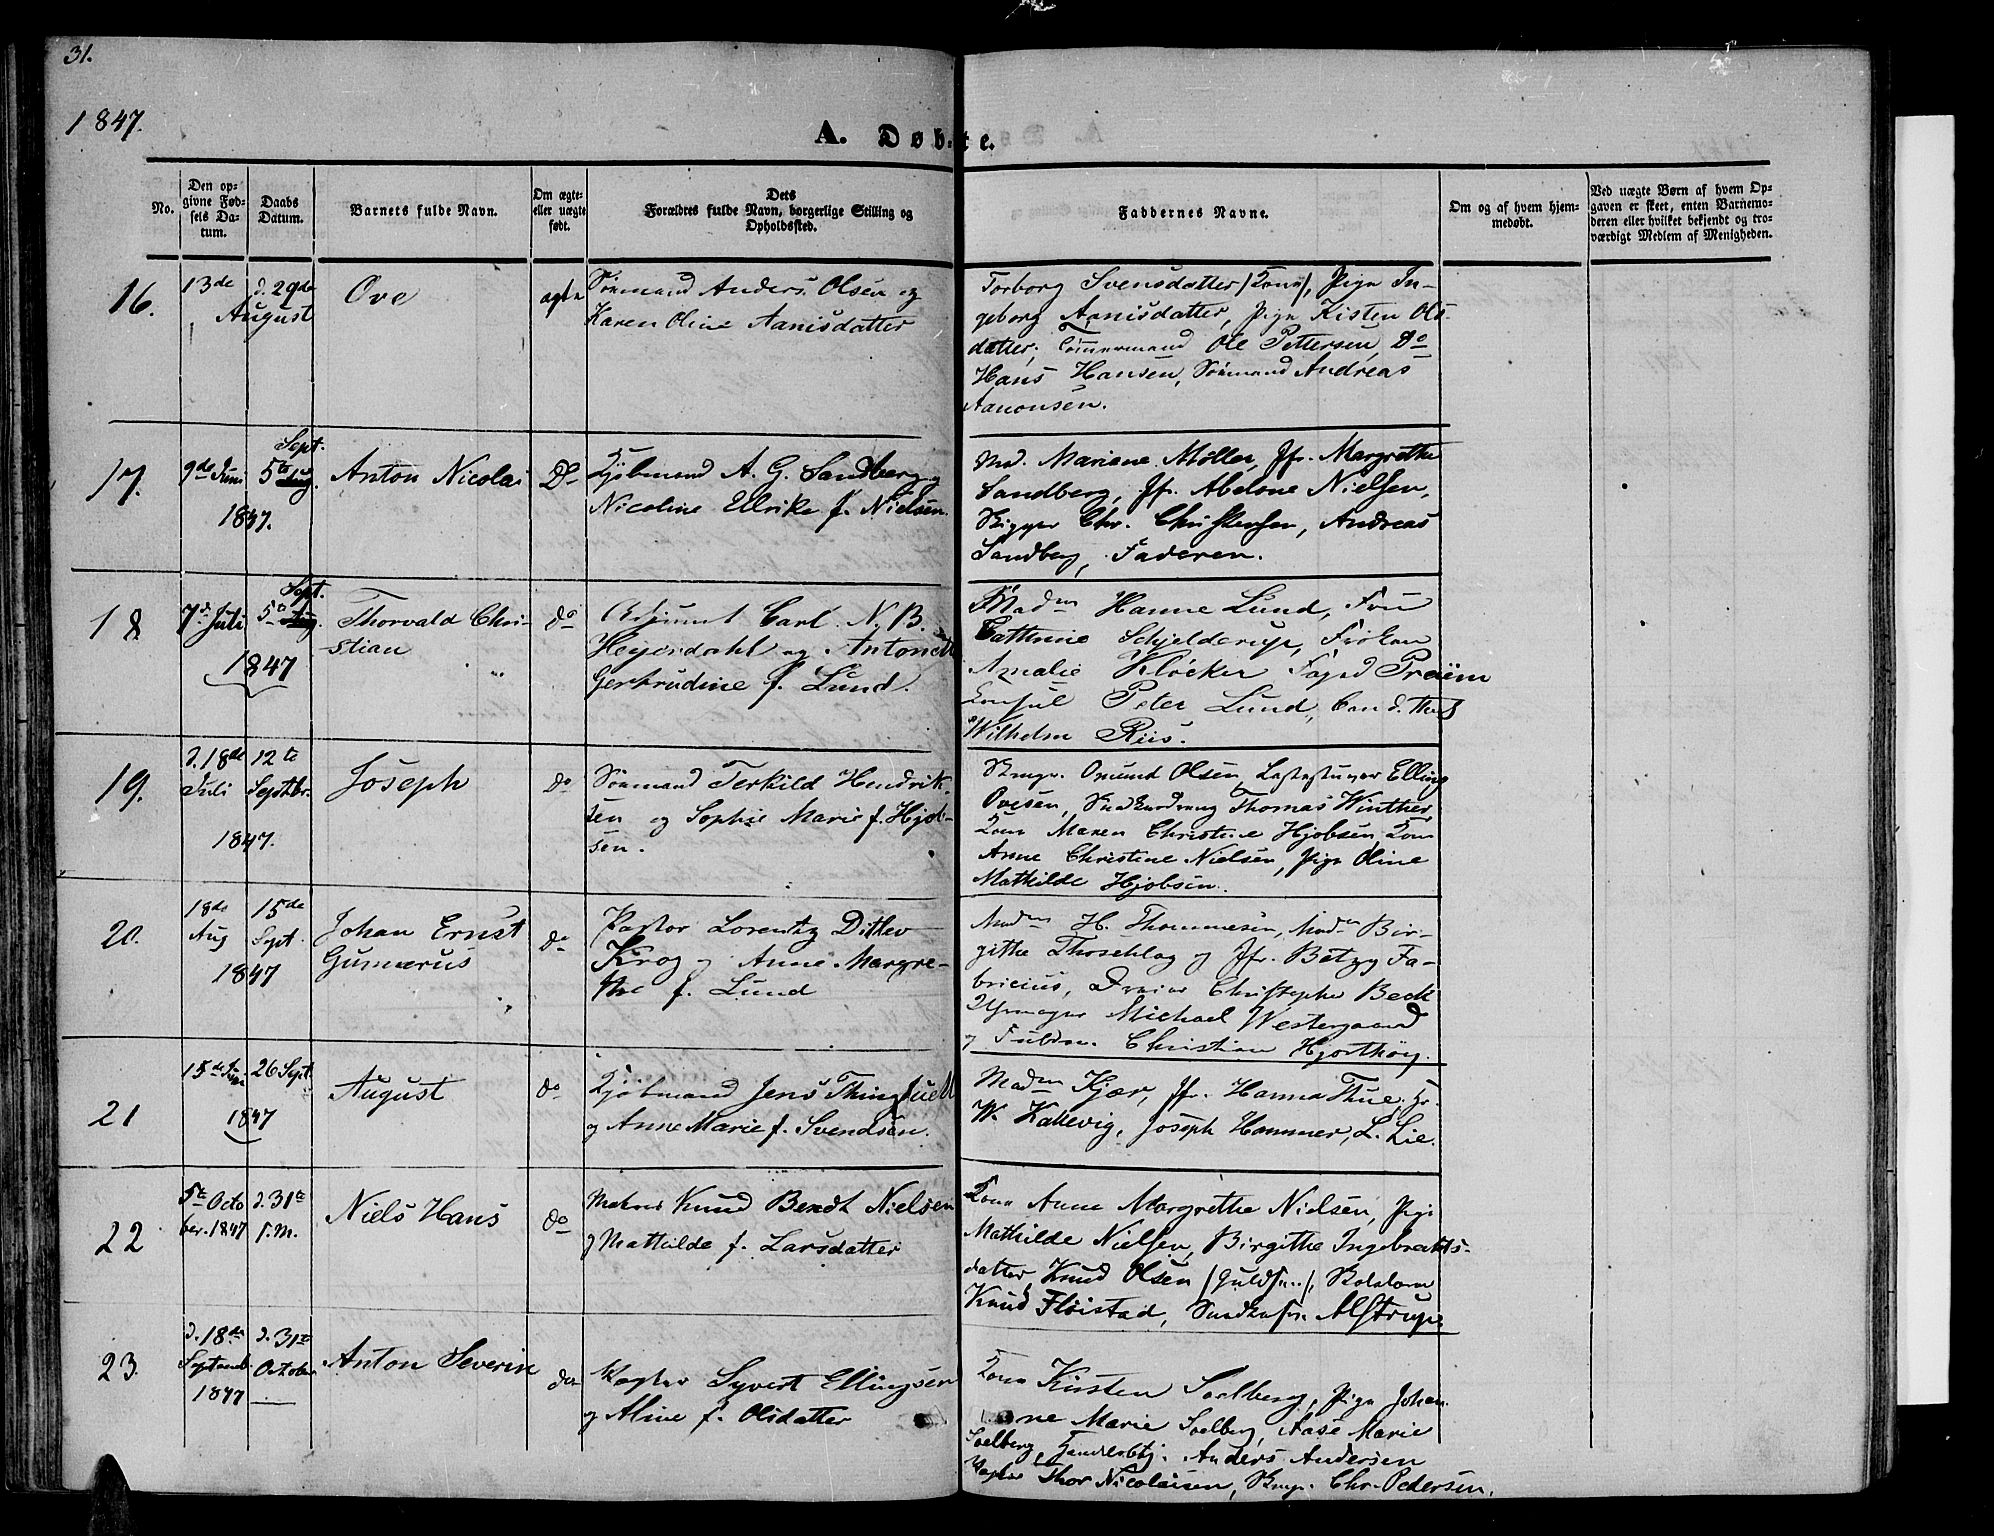 31.
1847.
A. Døbte.
No.
Den op-
givne Fød-
sels Da-
tum.
Daabs
Datum.
Barnets fulde Navn.
Om ægte-
eller uægte
født.
Dets
Forældres fulde Navn, borgerlige Stilling og
Opholdssted.
Faddernes Navne.
Om og af hvem hjem-
medøbt.
Ved uægte Børn af hvem Op-
gaven er skeet, enten Barnemo-
deren eller hvilket bekjendt og tro-
værdigt Medlem af Menigheden.
16.
13de
d. 29de
August
Ove
ægte
Sømand Anders Olsen og
Karen Oline Aanisdatter
Torborg Svensdatter (Kone), Pige In-
geborg Aanisdatter, Pige Kisten Ols-
datter, Tømmermand Ole Pettersen, Do
Hans Hansen, Sømand Andreas
Aanonsen.
17.
9de Juni
Sept.
5te Aug.
1847.
Anton Nicolai
Do
Kjøbmand A. G. Sandberg og
Nicoline Ulrike f. Nielsen.
Md. Mariane Møller, Jfr. Margrethe
Sandberg, Jfr. Abelone Nielsen,
Skipper Chr. Christensen, Andreas
Sandberg, Faderen.
18
7de Juli
Sept.
5te Aug.
1847
Thorvald Chri-
stian
do
Adjunct Carl N. B.
Heyerdahl og Antonette
Gertrudine f. Lund.
Madm Hanne Lund, Fru
Cathrine Schjelderup, Frøken
Amalie Kløcker Foged Preüm
Consul Peter Lund, Cand. Theol
Wilhelm Riis.
19.
d. 18de
Juli
12te
Septbr.
1847.
Joseph
do
Sømand Terkild Hendrik-
sen og Sophie Marie f. Hjob-
sen.
Omund Olsen, Elling
Ovesen, Thomas Winther,
Kone Maren Christine Hjobsen, Kone
Anne Christine Nielsen, Pige Oline
Mathilde Hjobsen.
20.
18de
Aug
15de
Sept.
1847
Johan Ernst
Gunnerus
do
Pastor Lorentz Ditlev
Krog og Anne Margre-
the f. Lund
Madm H. Thommesen, Madm Bir-
githe Throschlag og Jfr. Betzy Fa-
bricius, Dreier Christopher Beck
Uhrmager Michael Westergaard
og Fuldm. Christian Hjorthöy.
21
15de
26 Sept.
1847
August
do
Kjøbmand Jens Thingsuedt
og Anne Marie f. Svendsen.
Madm Kjær, Jfr. Hanna Thue, Hr.
W. Kallevig, Joseph Hammer, L. Lie.
22
5te Octo
ber. 1847
d. 31te
s. M.
Niels Hans
do
Knud Bendt Nielsen
og Mathilde f. Larsdatter
Kone Anne Margrethe Nielsen, Pige
Mathilde Nielsen, Birgithe Ingebrecht-
datter, Knud Olsen (Guldsm.),
Knud Fløistad, Alstrup.
23.
d. 18de
Septemb.
1847
d. 31te
October
Anton Severin
do
Syvert Ellingsen
og Aline f. Olsdatter
Kone Kirsten Soelberg, Pige Johan-
ne Marie Soelberg, Aase Marie
Soelberg, Anders Andersen
Thor Nicolaisen, Chr. Pedersen.